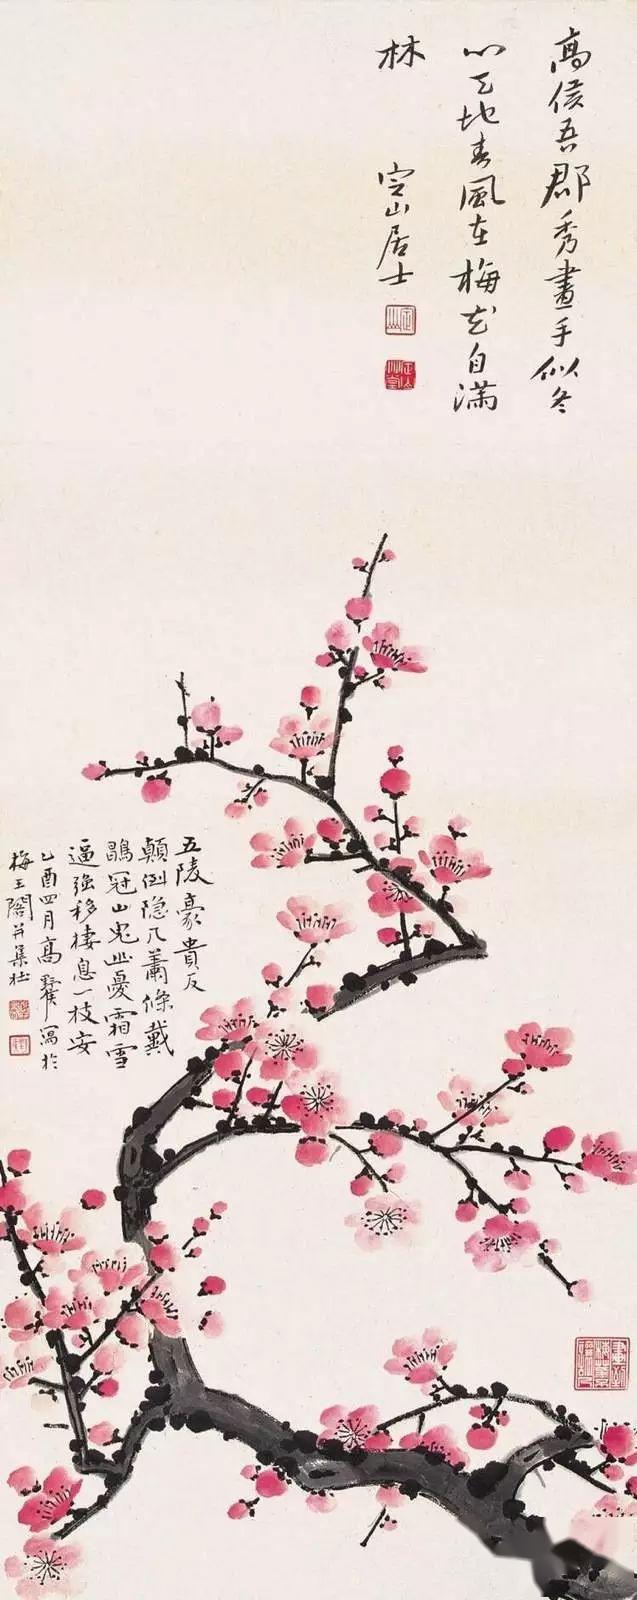 高侯吾郡秀畫手似冬
心天地春風在梅花自滿
林
空山居士
五陵豪貴反
顛倒隐几蕭條戴
鶡冠山鬼幽憂霜雪
逼强移棲息一枝安
乙酉四月高野侯寫於
梅王閣并集杜